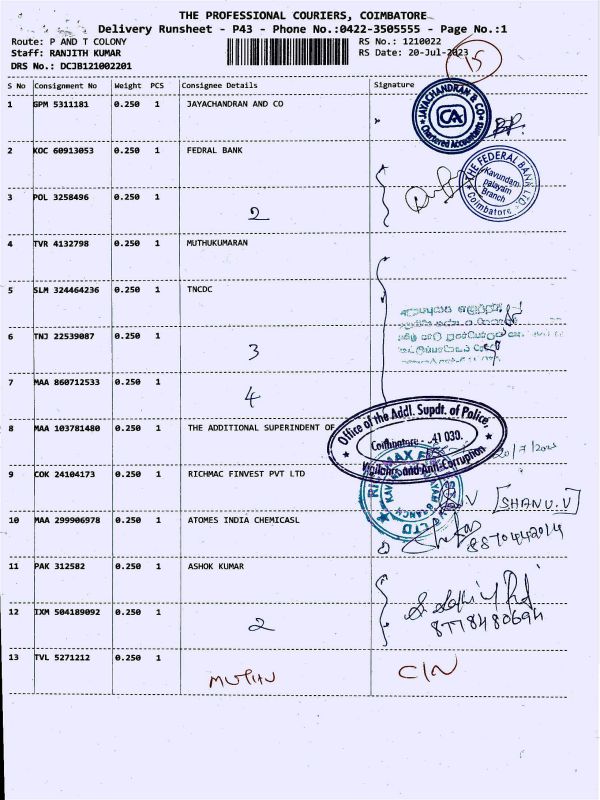 THE PROFESSIONAL COURIERS, COIMBATORE
Delivery Runsheet - P43 - Phone No.:0422-3505555 - Page No.:1
Route: P AND T COLONY RS No.: 1210022
Staff: RANJITH KUMAR RS Date: 20-Jul-2023
DRS No.: DCJB121002201
15
S No Consignment No Weight PCS Consignee Details Signature
1 GPM 5311181 0.250 1 JAYACHANDRAN AND CO
JAYACHANDRAN & CO
CA
Chartered Accountants
2 KOC 60913053 0.250 1 FEDRAL BANK
THE FEDERAL BANK LTD.
Kavundam
palayam
Branch
Coimbatore
3 POL 3258496 0.250 1
2
4 TVR 4132798 0.250 1 MUTHUKUMARAN
5 SLM 324464236 0.250 1 TNCDC
6 TNJ 22539087 0.250 1
3
7 MAA 860712533 0.250 1
4
8 MAA 103781480 0.250 1 THE ADDITIONAL SUPERINDENT OF
Office of the Addl. Supdt. of Police,
Coimbatore - 41 030.
Vigilance and Anti-Corruption
9 COK 24104173 0.250 1 RICHMAC FINVEST PVT LTD
[SHANU.V]
10 MAA 299906978 0.250 1 ATOMES INDIA CHEMICASL
8870442014
11 PAK 312582 0.250 1 ASHOK KUMAR
12 IXM 504189092 0.250 1
2
8778480694
13 TVL 5271212 0.250 1
MUTHU CIN